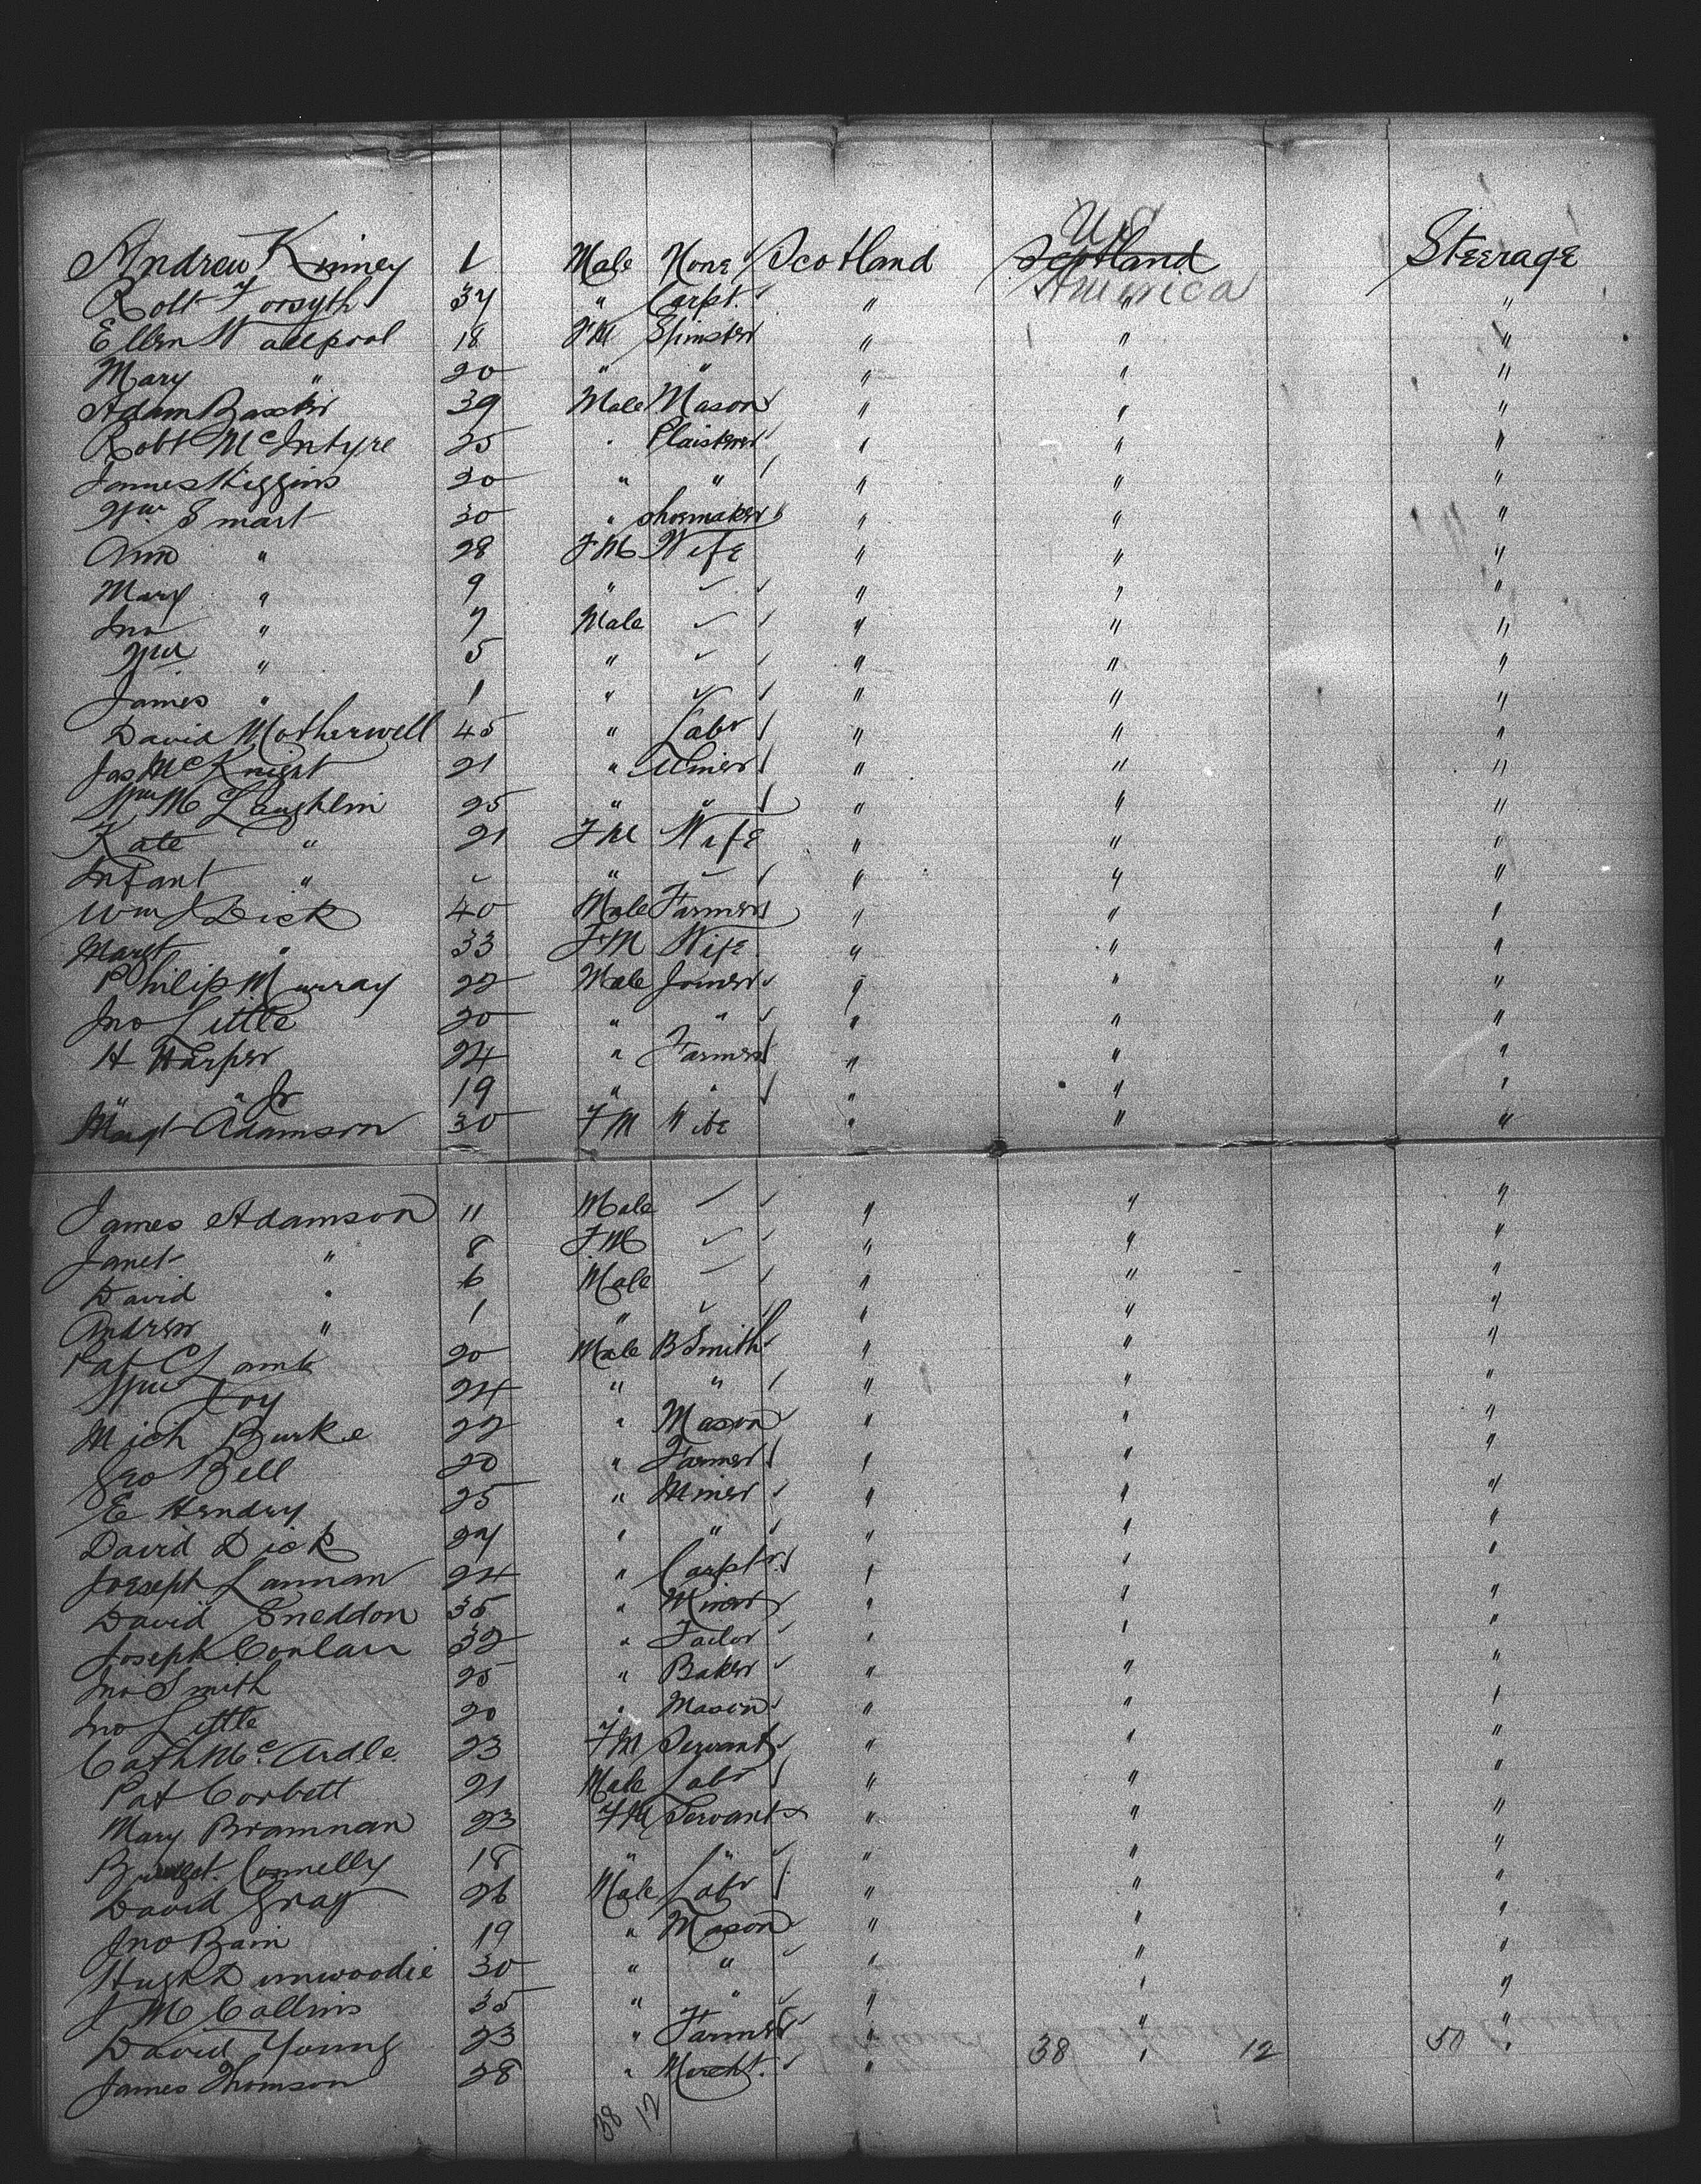 Andrew Kinney 1 Male None Scotland Scotland U.S. America Steerage
Robt Forsyth 34 " Carpt. " " "
Ellen Wallpool 18 FM Spinster " " "
Mary " 20 " " " " "
Adam Baxter 39 Male Mason " " "
Robt McIntyre 25 " Plaisterer " " "
James Higgins 20 " " " " "
Wm Smart 30 " Shoemaker " " "
Ann " 28 FM Wife " " "
Mary " 9 " " " "
Jno " 7 Male " " "
Wm " 5 " " " "
James " 1 " " " "
David Motherwell 45 " Labr " " "
Jas McKnight 21 " Miner " " "
Wm McLaughlin 25 " " " " "
Kate " 21 FM Wife " " "
Infant " " " " "
Wm Dick 40 Male Farmer " " "
Margt " 33 FM Wife " " "
Philip Murray 22 Male Joiner " " "
Jno Little 20 " " " " "
H Harper 24 " Farmer " " "
" " Jr 19 " " " " "
Margt Adamson 30 FM Wife " " "
James Adamson 11 Male " " "
Janet " 8 FM " " "
David " 6 Male " " "
Andrew " 1 " " " "
Pat C Lamb 20 Male B Smith " " "
Wm Joy 24 " " " " "
Mich Burke 22 " Mason " " "
Geo Bell 20 " Farmer " " "
E Hendry 25 " Miner " " "
David Dick 24 " " " " "
Joseph Lannan 24 " Carptr. " " "
David Sneddon 35 " Miner " " "
Joseph Conlan 32 " Tailor " " "
Jno Smith 25 " Baker " " "
Jno Little 20 " Mason " " "
Cath Mc.Ardle 23 FM Servant " " "
Pat Corbett 21 Male Labr " " "
Mary Bramnan 23 FM Servant " " "
Bridget. Connelly 18 " " " " "
David Gray 26 Male Labr " " "
Jno Bain 19 " Mason " " "
Hugh Dinwoodie 30 " " " " "
J McCollins 35 " " " " "
David Young 23 " Farmer " " "
James Thomson 28 " Mercht. " 38 " 12 50 "
38 12